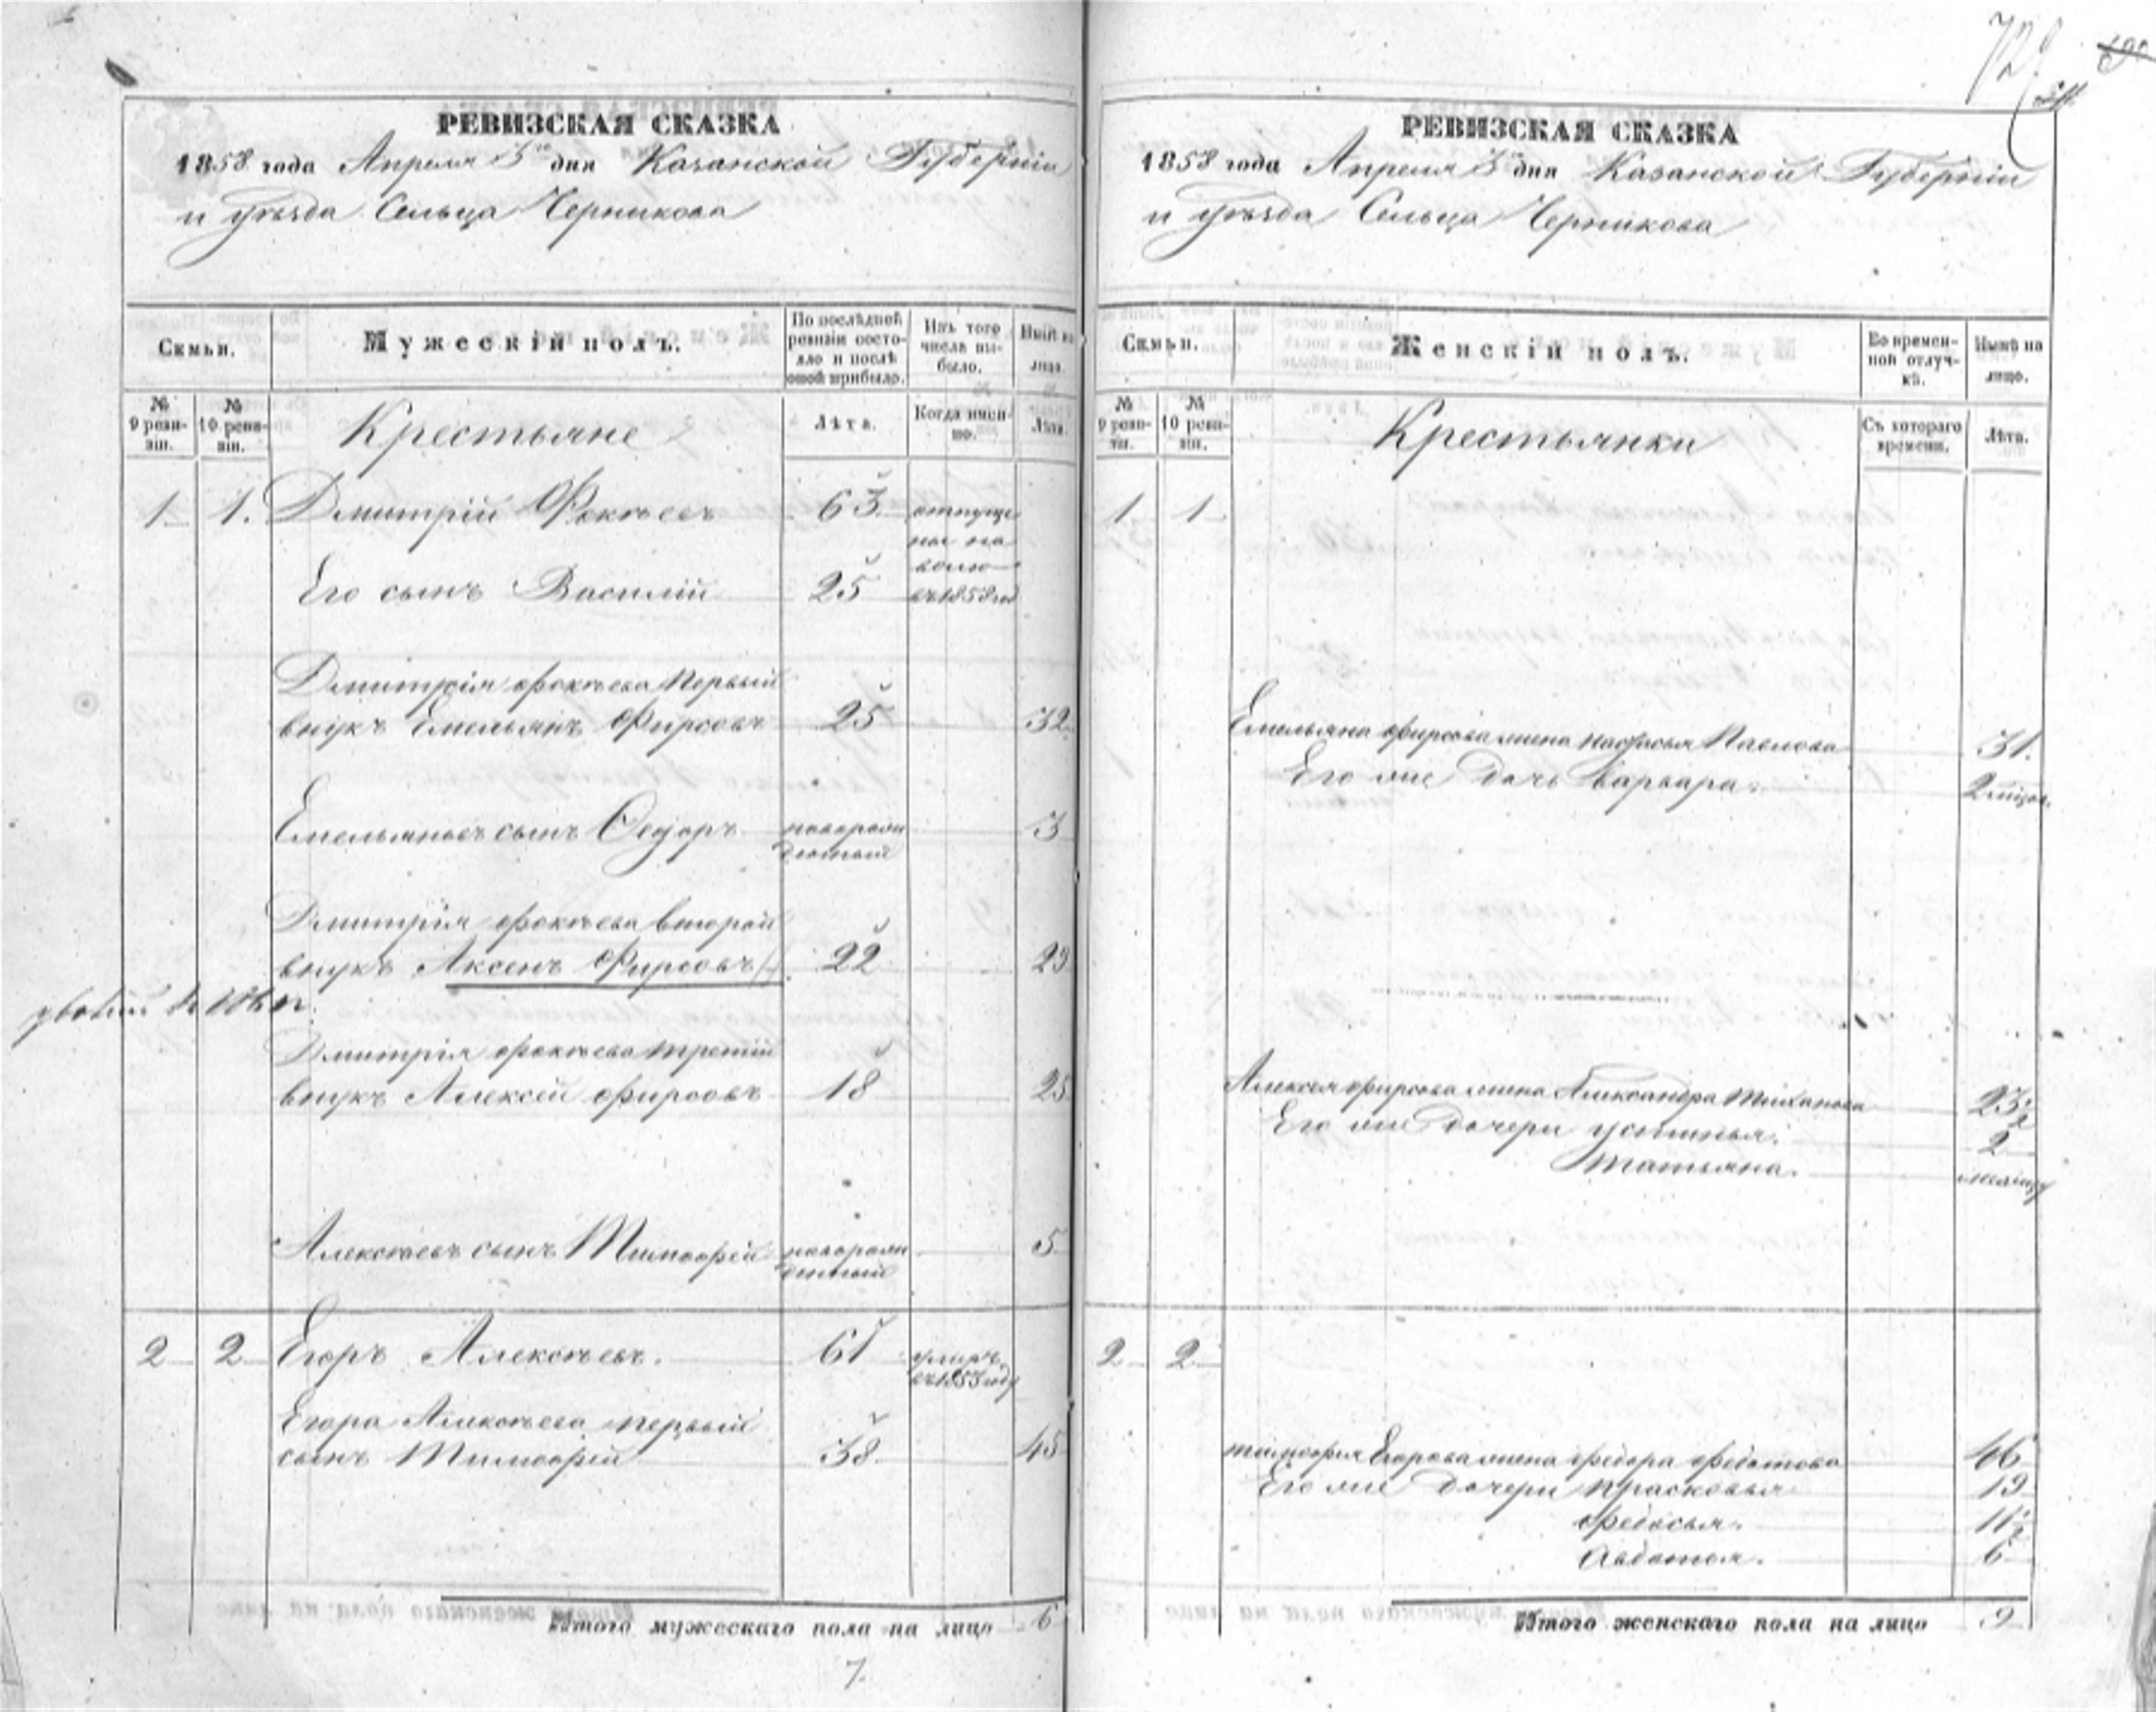 РЕВИЗСКАЯ СКАЗКА
1858 года Апреля 3 дня Казанской Губернiи
и уѣзда Сельца Черникова
Семьи.
Мужескiй полъ.
По послѣдней ревизiи состояло и послѣ оной прибыло.
Изъ того числа выбыло.
Нынѣ на лицо.
№ 9 ревизiи.
№ 10 ревизiи.
Крестьяне
Лѣта.
Когда именно.
Лѣта.
1 1. Дмитрiй Фокѣевъ 63 отпуще
ны на
волю
Его сынъ Василiй 25 въ 1858 год
Дмитрiя Фокѣева первый
внукъ Емельянъ Фирсовъ 25 32
Емельяновъ сынъ Ѳедоръ новорож 3
денный
Дмитрiя Фокѣева второй
внукъ Аксенъ Фирсовъ 22 29
Дмитрiя Фокѣева третiй
внукъ Алексѣй Фирсовъ 18 25
Алексѣевъ сынъ Тимофей новорож 5
денный
2 2 Егоръ Алексѣевъ. 61 умеръ
въ 1853 году
Егора Алексѣева первый
сынъ Тимофей 38 45
Итого мужескаго пола на лицо 6
7.
72
РЕВИЗСКАЯ СКАЗКА
1858 года Апреля 3 дня Казанской Губернiи
и уѣзда Сельца Черникова
Семьи.
Женскiй полъ.
Во временной отлучкѣ.
Нынѣ на лицо.
№ 9 ревизiи.
№ 10 ревизiи.
Крестьянки
Съ котораго времени.
Лѣта.
1 1
Емельяна Фирсова жена Настасья Павлова 31.
Его же дочь Варвара. 2 мѣсяц.
Алексея Фирсова жена Александра 23
Его же дочери Устинья. 2
Татьяна.
2 2
Тимофея Егорова жена Федора Федотова 46
Его же дочери Прасковья 19
Федосья. 11½
Авдотья. 6
Итого женскаго пола на лицо 9